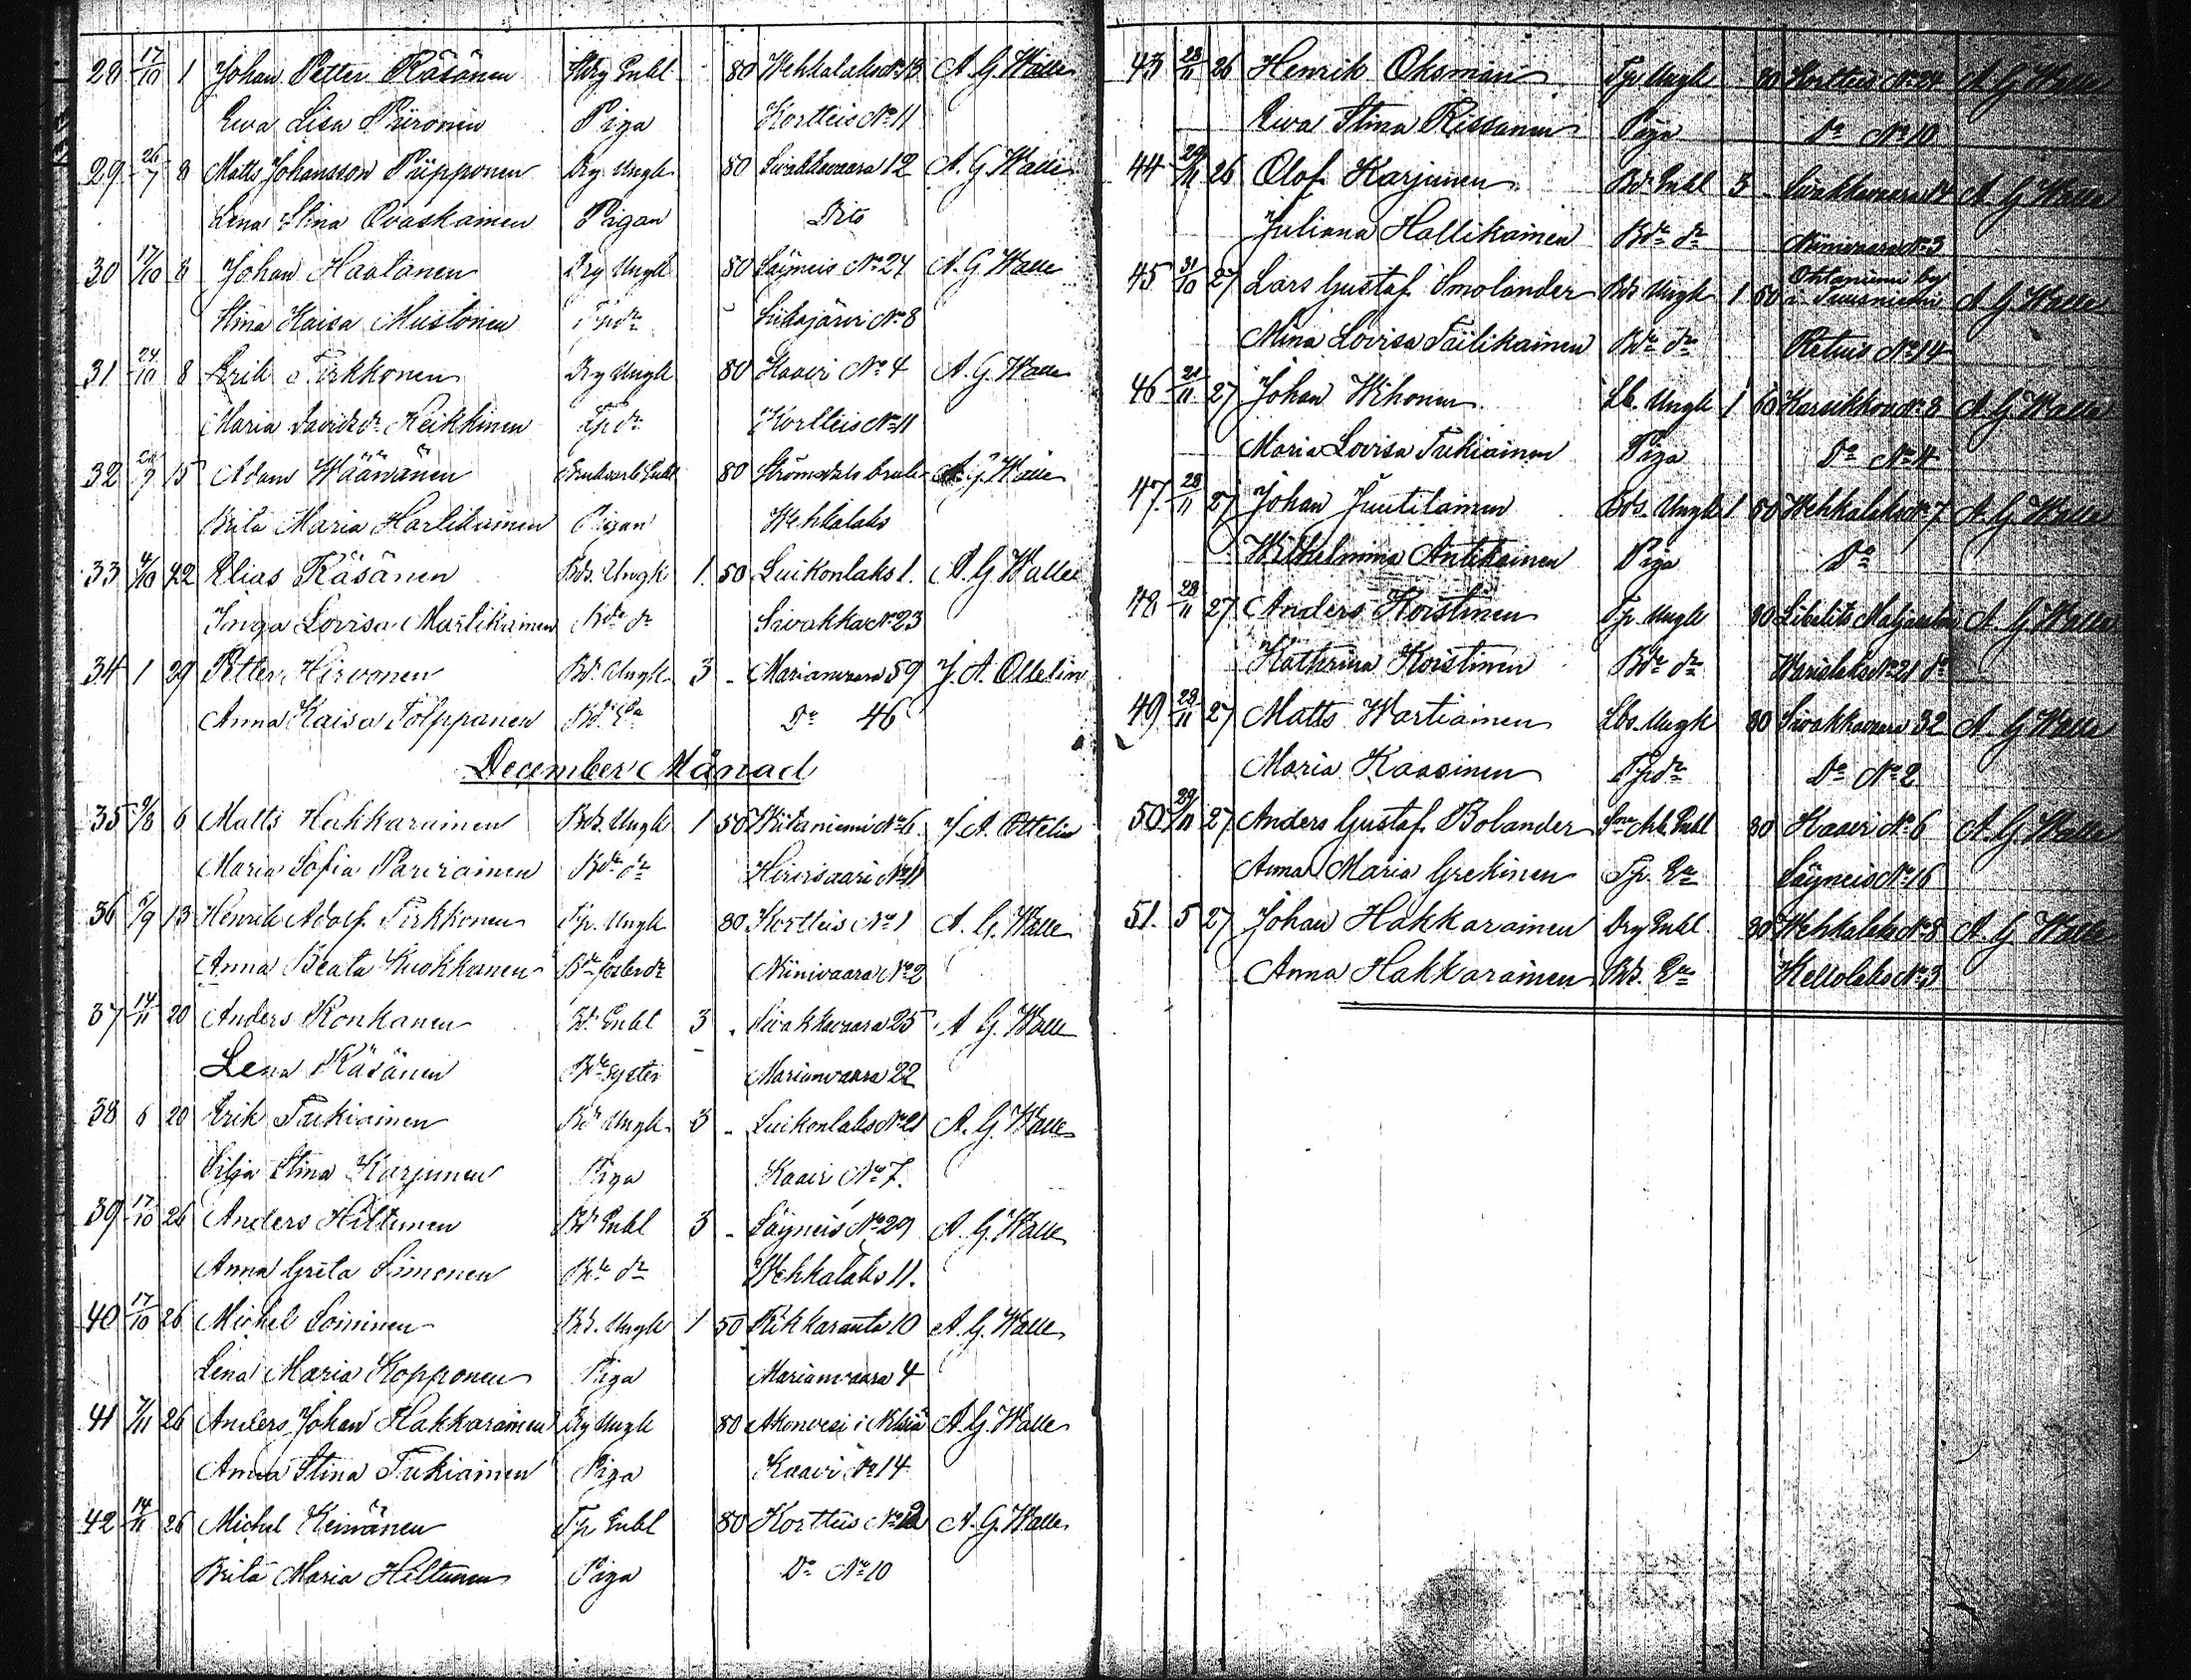 28 17/10 1 Johan Petter Räsänen Dry Enkl 80 Wehkalaks No 13 A. G. Walle
Ewa Lisa Piironen Piga Kortteis No 11
29 26/7 8 Matts Johansson Piipponen Dry Ungk 80 Siwakkavaara 12 A. G. Walle
Lena Stina Ovaskainen Pigan Dito
30 17/10 8 Johan Haatanen Dry Ungk 80 Säyneis No 24 A. G. Walle
Stina Kaisa Mustonen Tpdr Siikajärvi No 8
31 24/10 8 Erik Tirkkonen Dry Ungk 80 Kaavi No 4 A. G. Walle
Maria Davidsdr Keikkinen Tpdr Kortteis No 11
32 15 Adam Wäänänen Enkl 80 Strömsdals bruk A. G. Walle
Brita Maria Hartikainen Pigan Wehkalaks
33 4/10 22 Elias Räsänen Bds. Ungk 1. 50 Luikonlaks 1. A. G. Walle
Inga Lovisa Martikainen Bde dr Siwakka No 23
34 1 29 Petter Hirvonen Bd. Ungk 3 - Marianvaara 59 J. A. Ottelin
Anna Kaisa Tolppanen Bd. Ea Do 46
December Månad
35 9/8 6 Matts Hakkarainen Bds. Ungk 1 50 Niitaniemi No 6 J. A. Ottelin
Maria Sofia Parviainen Bde dr Hirvisaari No 11
36 5/9 13 Henrik Adolf Tirkkonen Tp. Ungk 80 Kortteis No 1 A. G. Walle
Anna Beata Kuokkanen Bde fosterdr Niinivaara No 2
37 14/11 20 Anders Konkanen Bd. Enkl 3 - Siwakkavaara 25 A. G. Walle
Lena Räsänen Bde syster Marianvaara 22
38 6 20 Erik Tukiainen Bd Ungk 3 - Luikonlaks No 21 A. G. Walle
Silja Stina Karjunen Piga Kaavi No 7.
39 17/10 26 Anders Hiltunen Bd Enkl 3 - Säyneis No 29 A. G. Walle
Anna Greta Simonen Bde dr Wehkalaks 11.
40 17/10 26 Michel Soininen Bds. Ungk 1 50 Rikkaranta 10 A. G. Walle
Lena Maria Kopponen Piga Marianvaara 4
41 7/11 26 Anders Johan Hakkarainen Dry Ungk 80 Akonvesi i Nilsiä A. G. Walle
Anna Stina Tukiainen Piga Kaavi No 14
42 14/11 26 Michel Keinänen Tp Enkl 80 Kortteis No 12 A. G. Walle
Brita Maria Hiltunen Piga Do No 10
43 28/11 26 Henrik Oksman Tp. Ungk 80 Kortteis No 24 A G Walle
Ewa Stina Rissanen Piga Do No 10
44 29/11 26 Olof Karjunen Bd. Enkl 3 - Siwakkavaara 14 A. G Walle
Juliana Hallikainen Bde dr Niinivaara No 3
45 31/10 27 Lars Gustaf Smolander Bds Ungk 1 50 Ohtaniemi by i Tuusniemi A. G Walle
Mina Lovisa Tiilikainen Bde dr Retuis No 14
46 21/11 27 Johan Wihonen Lb. Ungk 1 60 Karsikkovaara 8 A. G Walle
Maria Lovisa Tukiainen Piga Do No 4
47. 28/11 27 Johan Juutilainen Bds. Ungk 1 50 Wehkalaks No 7 A. G Walle
Wilhelmina Antikainen Piga Do
48 28/11 27 Anders Koistinen Tp. Ungk 80 Libelits A. G Walle
Kathrina Koistinen Bde dr No 21
49 28/11 27 Matts Wartiainen Lbs. Ungk 80 Siwakkavaara 32 A. G Walle
Maria Kaasinen Tpdr Do No 2
50 29/11 27 Anders Gustaf Bolander Enkl 80 Kaavi No 6 A. G Walle
Anna Maria Grekinen Tp. Ea Säyneis No 16
51. 5 27 Johan Hakkarainen Dry Enkl. 80 Wehkalaks No 8 A. G Walle
Anna Hakkarainen Bds. Ea Kellolaks No 3